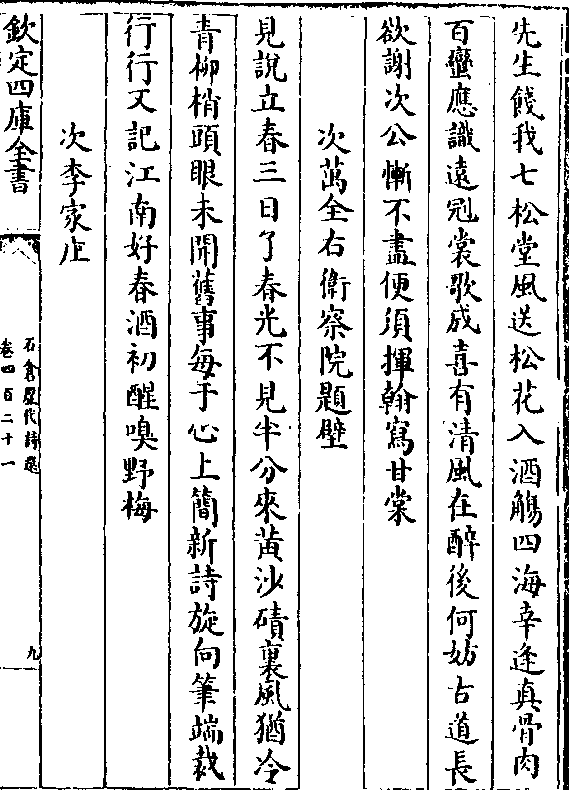 先生餞我七松堂風送松花入酒觴四海幸逢真骨肉
百蠻應識遠冠裳歌成喜有清風在醉後何妨古道長
欲謝次公慚不盡便須揮翰寫甘棠
次萬全右衛察院題壁
見說立春三日了春光不見半分來黄沙磧裏風猶冷
青柳梢頭眼未開舊事每于心上簡新詩旋向筆端裁
行行又記江南好春酒初醒嗅野梅
次李家庄
欽定四庫全書
石倉歷代詩選
卷四百二十一
九